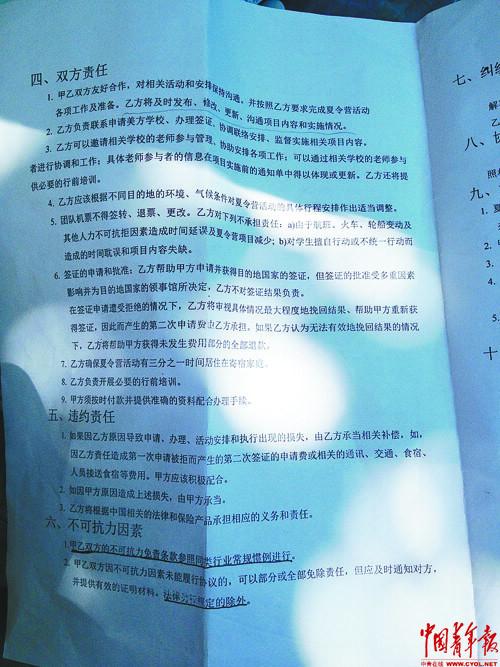 四、双方责任
1. 甲乙双方友好合作，对相关活动和安排保持沟通，并按照乙方要求完成夏令营活动
各项工作及准备。乙方将及时发布、修改、更新、沟通项目内容和实施情况。
2. 乙方负责联系申请美方学校、办理签证、协调联络安排、监督实施相关项目内容。
3. 乙方可以邀请相关学校的老师参与管理，协助安排各项工作；可以通过相关学校的老师参与
者进行协调和工作；具体老师参与者的信息在项目实施前的通知单中得以体现或更新。乙方还将提
供必要的行前培训。
4. 乙方应该根据不同目的地的环境、气候条件对夏令营活动的具体行程安排作出适当调整。
5. 团队机票不得签转、退票、更改。乙方对下列不承担责任：a)由于航班、火车、轮船变动及
其他人力不可抗拒因素造成时间延误及夏令营项目减少；b)对学生擅自行动或不统一行动而
造成的时间耽误和项目内容失缺。
6. 签证的申请和批准：乙方帮助甲方申请并获得目的地国家的签证，但签证的批准受多重因素
影响并为目的地国家的领事馆所决定，乙方不对签证结果负责。
在签证申请遭受拒绝的情况下，乙方将审视具体情况最大程度地挽回结果、帮助甲方重新获
得签证，因此而产生的第二次申请费由乙方承担。如果乙方认为无法有效地挽回结果的情况
下，乙方将帮助甲方获得未发生费用部分的全部退款。
7. 乙方确保夏令营活动有三分之一时间居住在寄宿家庭。
8. 乙方负责开展必要的行前培训。
9. 甲方须按时付款并提供准确的资料配合办理手续。
五、违约责任
1. 如果因乙方原因导致申请、办理、活动安排和执行出现的损失，由乙方承当相关补偿，如，
因乙方责任造成第一次申请被拒而产生的第二次签证的申请费或相关的通讯、交通、食宿、
人员接送食宿等费用。甲方应该积极配合。
2. 如因甲方原因造成上述损失，由甲方承当。
3. 乙方将根据中国相关的法律和保险产品承担相应的义务和责任。
六、不可抗力因素
1.甲乙双方的不可抗力免责条款参照同类行业常规惯例进行。
2. 甲乙双方因不可抗力因素未能履行协议的，可以部分或全部免除责任，但应及时通知对方，
并提供有效的证明材料。法律另有规定的除外。
七、纠纷
解
乙
八、协
照
九、
1. 夏
2.
3.
4.
5.
十
中国青年报
中青在线 WWW.CYOL.NET